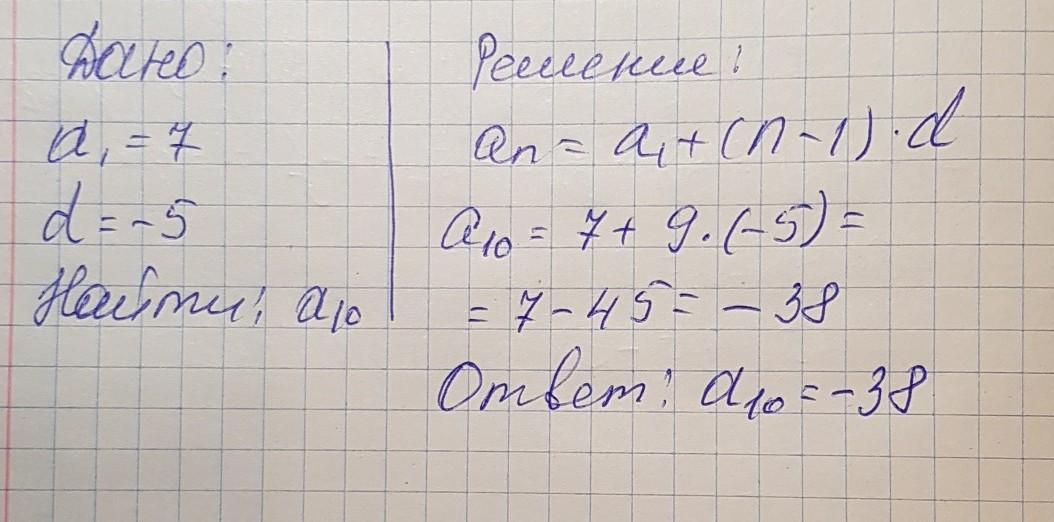 Дано:
a₁ = 7
d = -5
Найти: a₁₀
Решение:
an = a₁ + (n - 1) · d
a₁₀ = 7 + 9 · (-5) =
= 7 - 45 = - 38
Ответ: a₁₀ = -38